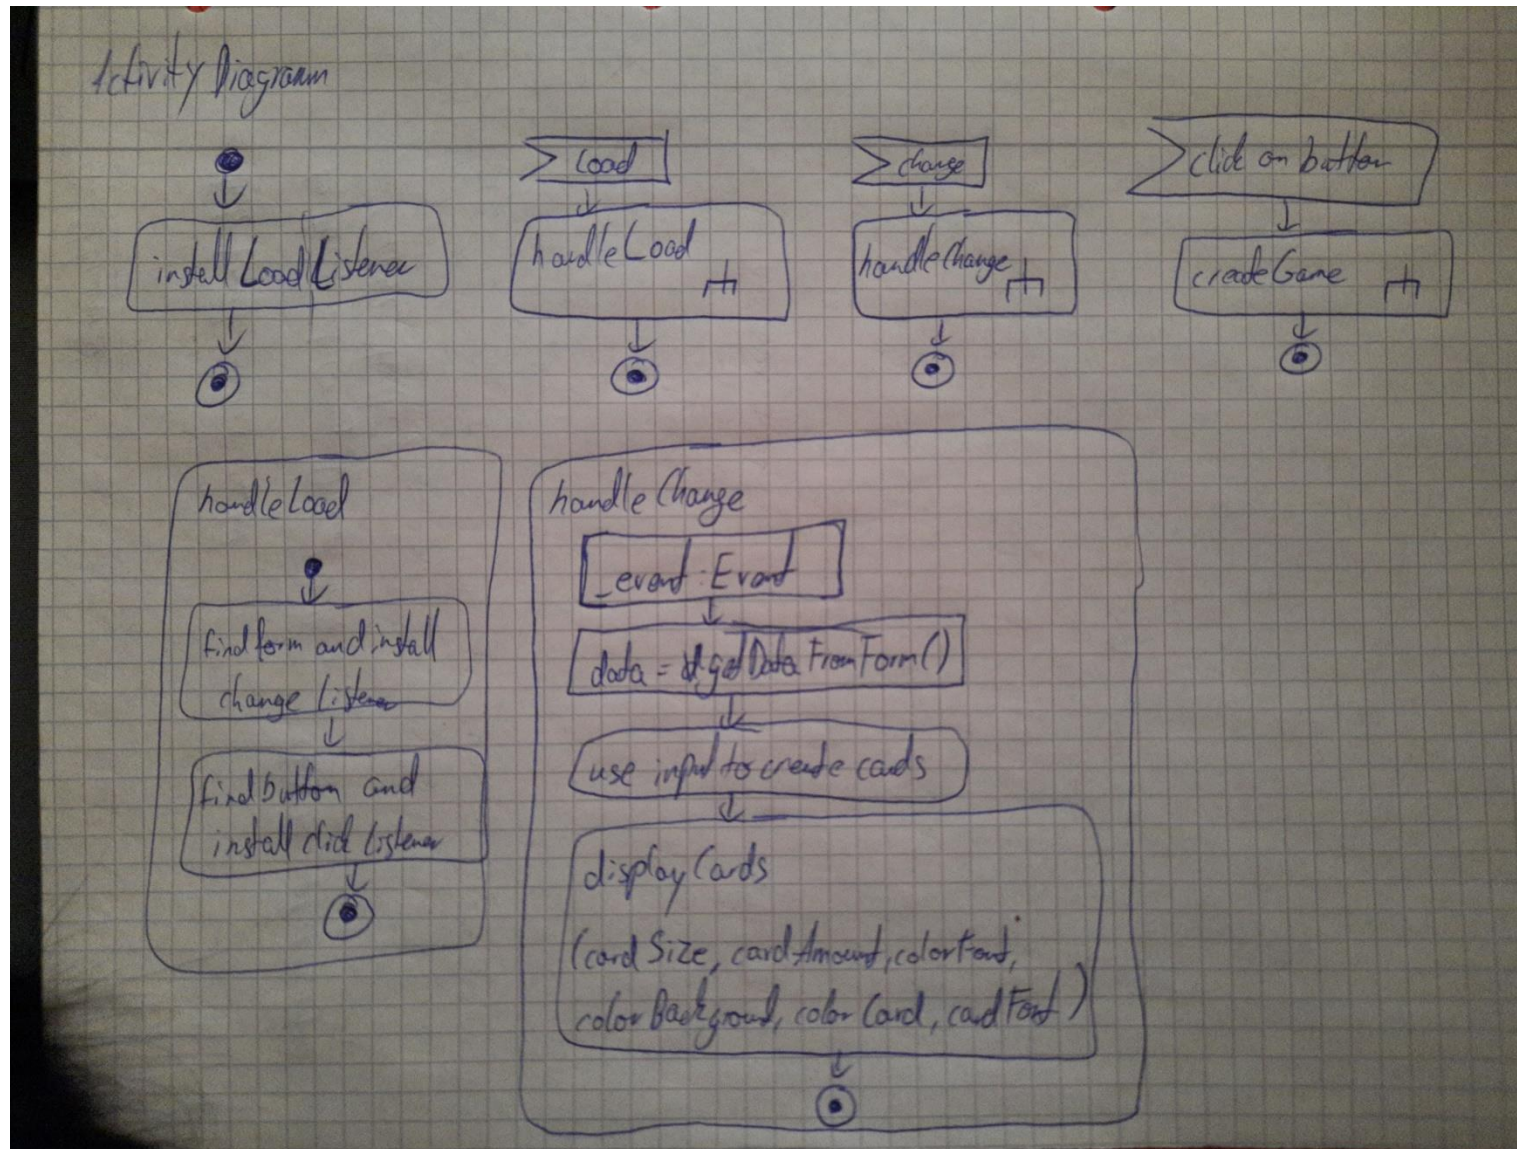 Activity Diagramm
load
change
click on button
install Load Listener
handleLoad
handleChange
createGame
handleLoad
find form and install
change listener
find button and
install click listener
handleChange
_event: Event
data = getDataFromForm()
use input to create cards
displayCards
(cardSize, cardAmount, colorFont,
colorBackground, colorCard, cardFont)